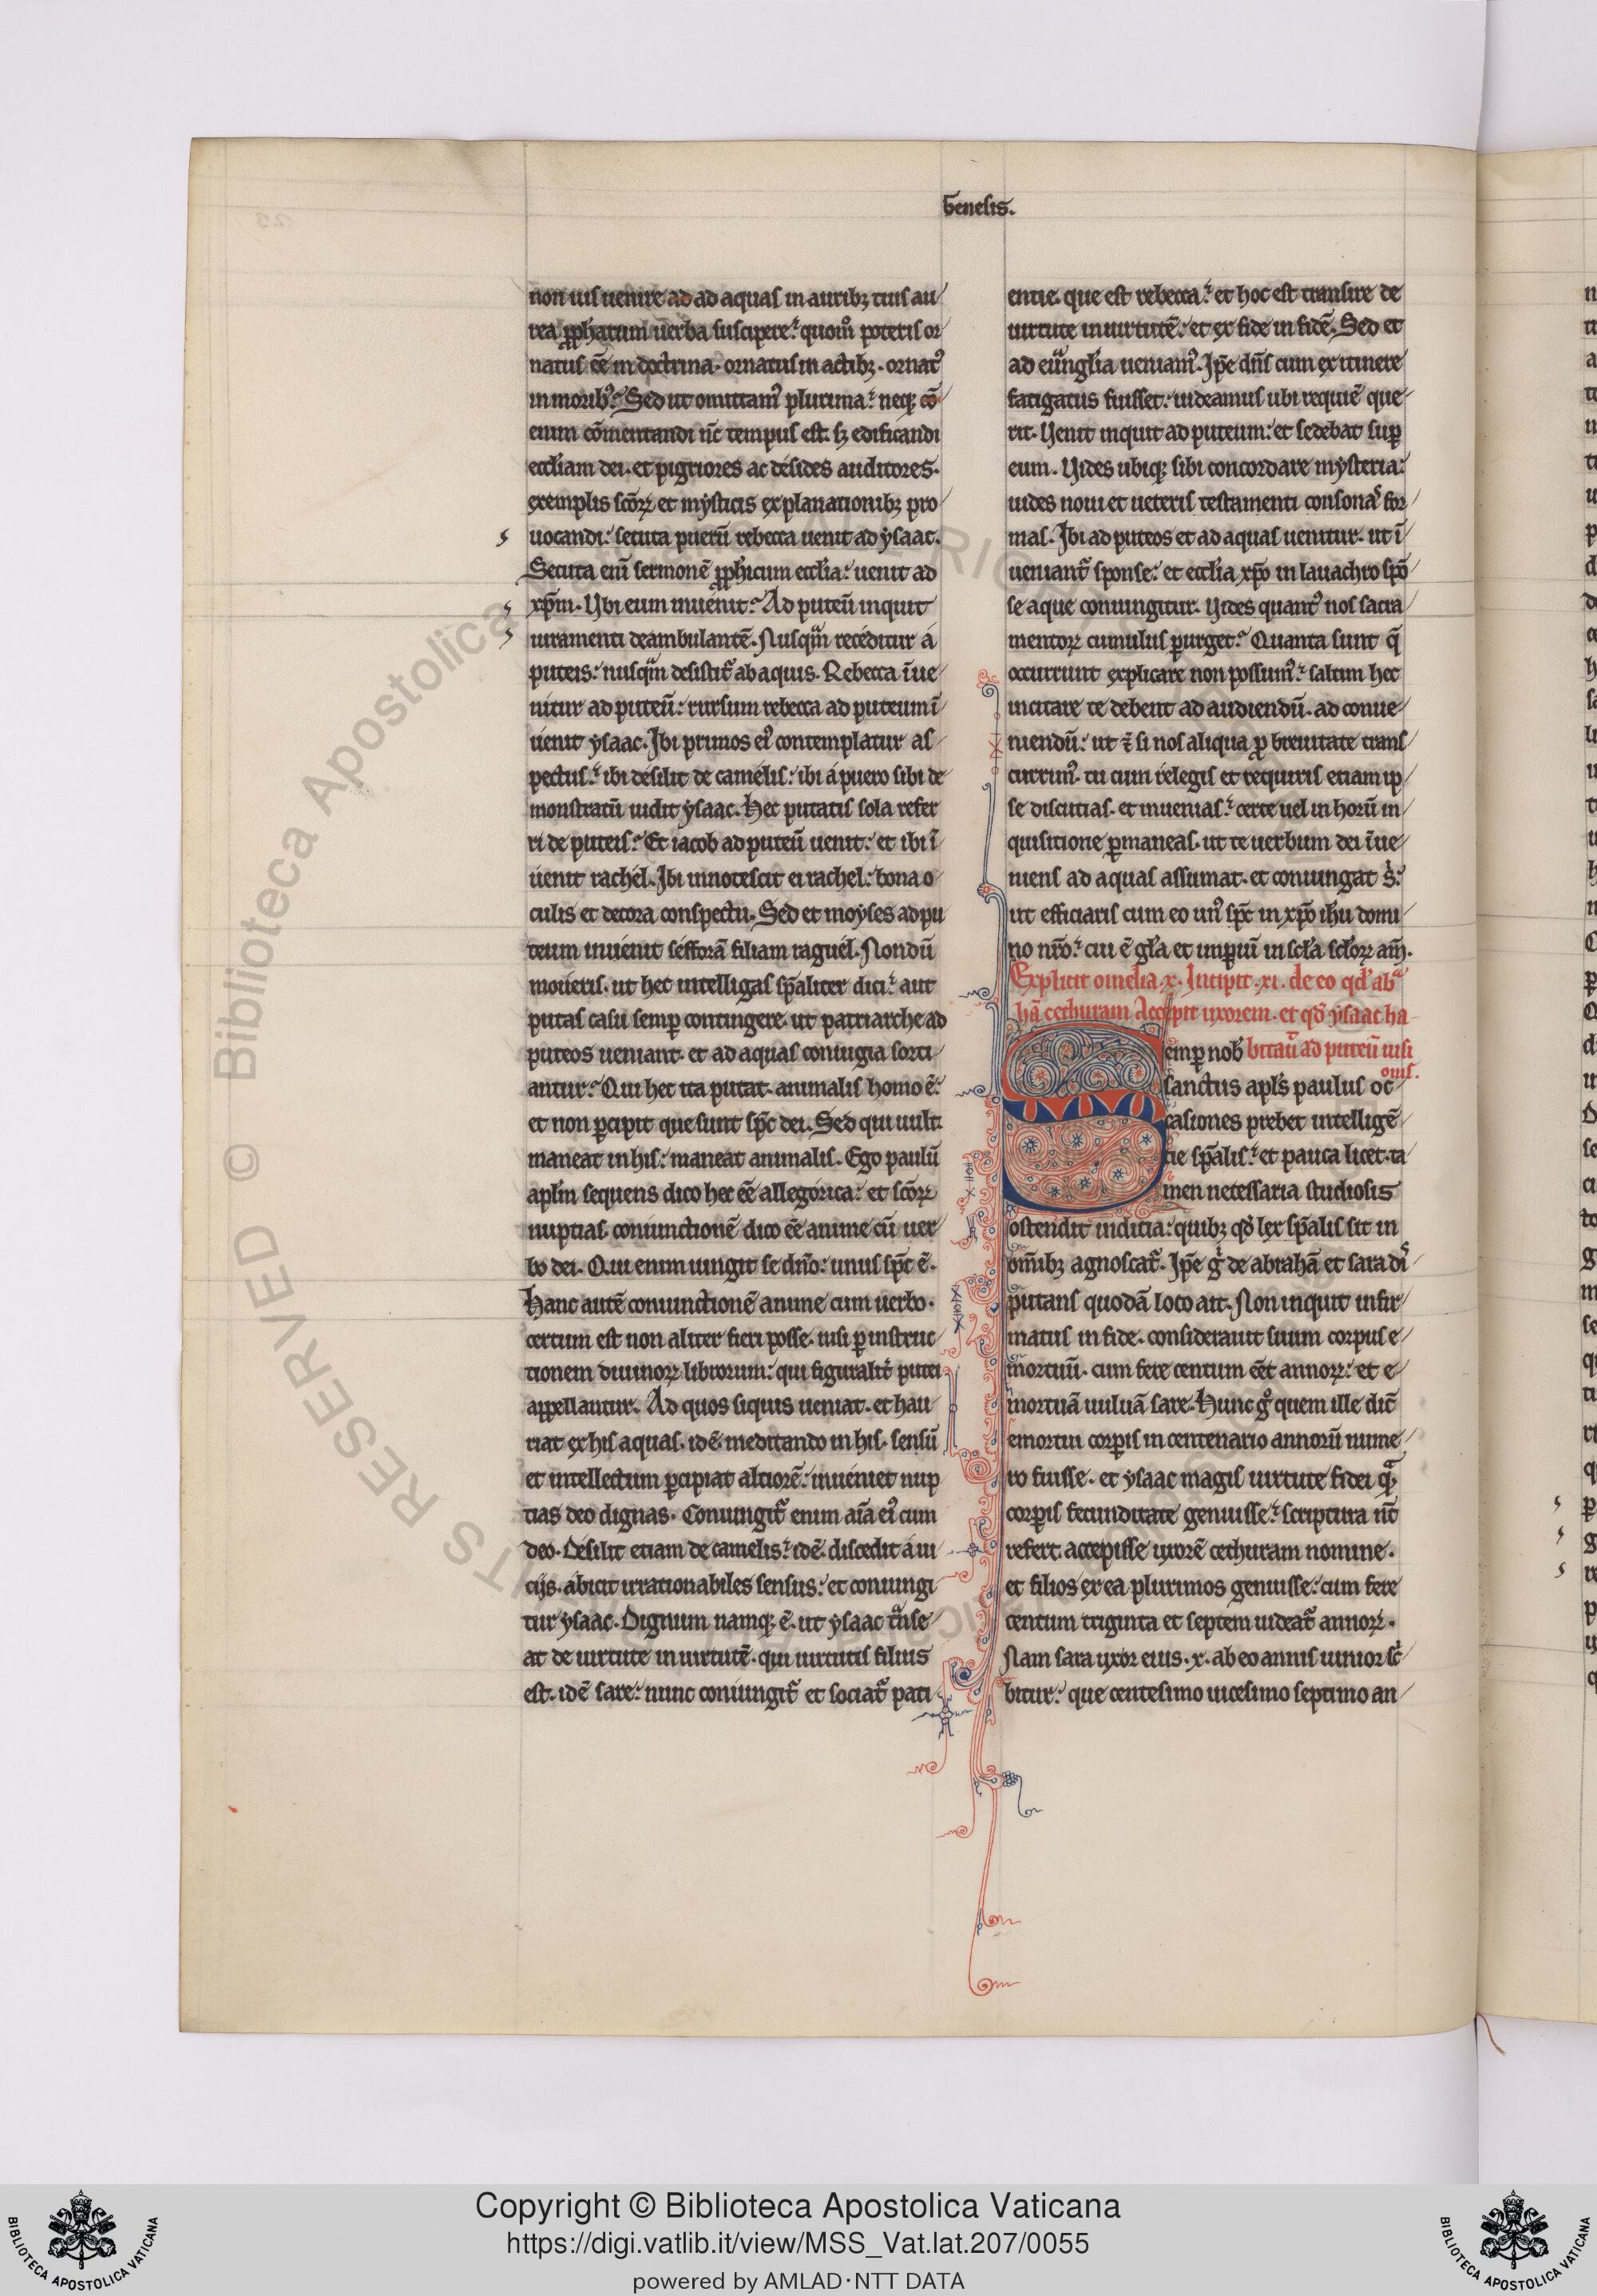 Genesis.
non uis uenire ad ad aquas in aurib; tuis au
rea ꝓph̃arum uerba suscipere: quom̊ poteris or
natus eē in doctrina. ornatus in actib;. ornat᾽
in morib᾽? Sed ut omittam᾽ plurima: neq; cō
enim cōmentandi nc̄ tempus est. s; edificandi
eccl̃iam dei. et pigriores ac desides auditores.
exemplis scōꝝ et mysticis explanationib; pro
uocandi: secuta puerū rebecca uenit ad ysaac.
Secuta eni᷑ sermonē ꝓph̃icum eccl̃ia: uenit ad
xp̄m. Vbi eum inuenit? Ad puteū inquit
iuramenti deambulantē. Nusq̄m receditur á
puteis: nusq̄m desistit᷑ ab aquis. Rebecca īue
nitur ad puteū: rursum rebecca ad puteum ī
uenit ysaac. Ibi primos ei᾽ contemplatur as
pectus: ibi desilit de camelis: ibi á puero sibi de
monstratū uidit ysaac. Hec putatis sola refer
ri de puteis? Et iacob ad puteū uenit: et ibi ī
uenit rachel. Ibi innotescit ei rachel: bona o
culis et decora conspectu. Sed et moyses ad pu
teum inuenit sefforā filiam raguel. Nondū
moueris. ut hec intelligas sp̄aliter dici: aut
putas casu semꝑ contingere. ut patriarche ad
puteos ueniant. et ad aquas coniugia sorti
antur? Qui hec ita putat. animalis homo ē:
et non ꝑcipit que sunt sp̄c dei. Sed qui uult
maneat in his: maneat animalis. Ego paulū
apl̃m sequens dico hec eē allegorica: et scōꝝ
nuptias. coniunctionē dico eē anime cū uer
bo dei. Qui enim iungit se dn̄o: unus sp̄c ē.
Hanc autē coniunctionē anime cum uerbo.
certum est non aliter fieri posse. nisi ꝑ instruc
tionem diuinoꝝ librorum: qui figuralit᷑ putei
appellantur. Ad quos siquis ueniat. et hau
riat ex his aquas. id ē meditando in his. sensū
et intellectum ꝑcipiat altiorē: inueniet nup
tias deo dignas. Coniungit᷑ enim aīa ei᾽ cum
deo. Desilit etiam de camelis: id ē. discedit á ui
cijs. abicit irrationabiles sensus: et coniungi
tur ysaac. Dignum namq; ē. ut ysaac t̃nse
at de uirtute in uirtutē. qui uirtutis filius
est. id ē sare: nunc coniungit᷑ et sociat᷑ pati
entie. que est rebecca: et hoc est transire de
uirtute in uirtutē: et ex fide in fidē. Sed et
ad eũnglia ueniam᾽. Ip̄e dn̄s cum ex itinere
fatigatus fuisset: uideamus ubi requiē que
rit. Venit inquit ad puteum: et sedebat suꝑ
eum. Vides ubiq; sibi concordare mysteria:
uides noui et ueteris testamenti consona᷑ for
mas. Ibi ad puteos et ad aquas uenitur. ut ī
ueniant᷑ sponse: et eccl̃ia xp̄o in lauachro spō
se aque coniungitur. Vides quant᾽ nos sacra
mentoꝝ cumulus ꝑurget? Quanta sunt q̄
occurrunt explicare non possum᾽: saltim hec
incitare te debent ad audiendū. ad conue
niendū: ut ⁊ si nos aliqua ꝓ breuitate trans
currim᾽. tu cum relegis et requiris etiam ip
se discutias. et inuenias: certe uel in horū in
quisitione ꝑmaneas. ut te uerbum dei īue
niens ad aquas assumat. et coniungat s᷑:
ut efficiaris cum eo un᾽ sp̄c in xp̄o ih̄u domi
no nr̄o: cui ē gl̃a et imꝑiū in scl̃a scl̃oꝝ am̄.
Explicit omelia. x. Incipit. xi. de eo qd̃ abra
hā cethuram Accepit uxorem. et qd̃ ysaac ha
Semꝑ nob᾽ bitau᷑ ad puteū uisi
onis.
sanctus apl̃s paulus oc
casiones prebet intelligē
tie sp̄alis: et pauca licet. ta
men necessaria studiosis
ostendit indicia: quib; qd̃ lex sp̄alis sit in
om̄ib; agnoscat᷑. Ip̄e g̊ de abrahā et sara di᷑
putans quodā loco ait. Non inquit infir
matus in fide. considerauit suum corpus e
mortuū. cum fere centum eēt annoꝝ: et e
mortuā uuluā sare. Hunc g̊ quem ille dic̄
emortui corꝑis in centenario annorū nume
ro fuisse. et ysaac magis uirtute fidei q̃
corꝑis fecunditate genuisse: scriptura nc̄
refert. accepisse uxorē cethuram nomine.
et filios ex ea plurimos genuisse: cum fere
centum triginta et septem uideat᷑ annoꝝ.
Nam sara uxor eius. x. ab eo annis iunior sc᷑
bitur: que centesimo uicesimo septimo an
Copyright © Biblioteca Apostolica Vaticana
https://digi.vatlib.it/view/MSS_Vat.lat.207/0055
powered by AMLAD·NTT DATA